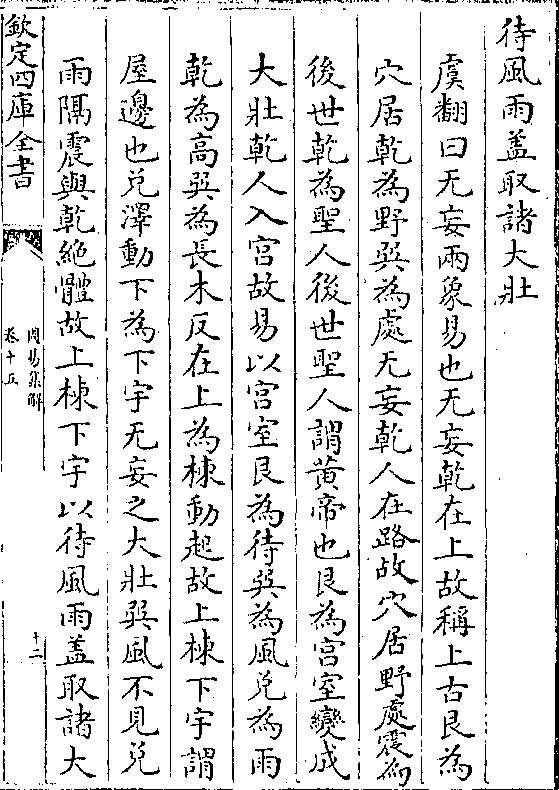 待風雨盖取諸大壯
虞翻曰无妄兩象易也无妄乾在上故稱上古艮為
穴居乾為野巽為處无妄乾人在路故穴居野處震為
後世乾為聖人後世聖人謂黄帝也艮為宫室變成
大壯乾人入宫故易以宫室艮為待巽為風兌為雨
乾為高巽為長木反在上為棟動起故上棟下宇謂
屋邊也兌澤動下為下宇无妄之大壯巽風不見兌
雨隔震與乾絶體故上棟下宇以待風雨盖取諸大
欽定四庫全書
周易集解
卷十五
十二